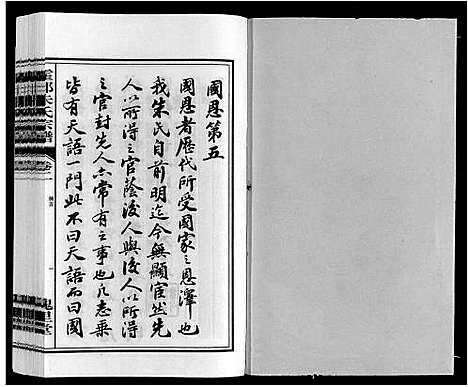 國恩第五
國恩者歷代所受國家之恩澤也
我朱氏自前明迄今無顯宦然先
人以所得之官蔭後人與後人以所得
之官封先人亦常有之事也凡志乘
皆有天語一門此不曰天語而曰國
朱氏宗譜
卷二